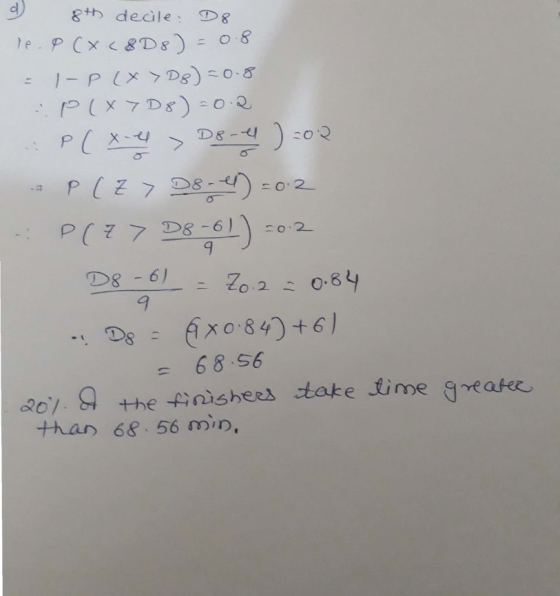 d) 8th decile: D8
ie. P(X < 8D8) = 0.8
= 1 - P(X > D8) = 0.8
∴ P(X > D8) = 0.2
∴ P( X-μ/σ > D8-μ/σ ) = 0.2
= P( Z > D8-μ/σ ) = 0.2
∴ P( Z > D8-61/9 ) = 0.2
D8 - 61/9 = Z0.2 = 0.84
∴ D8 = (9×0.84)+61
= 68.56
20% of the finishers take time greater
than 68.56 min.